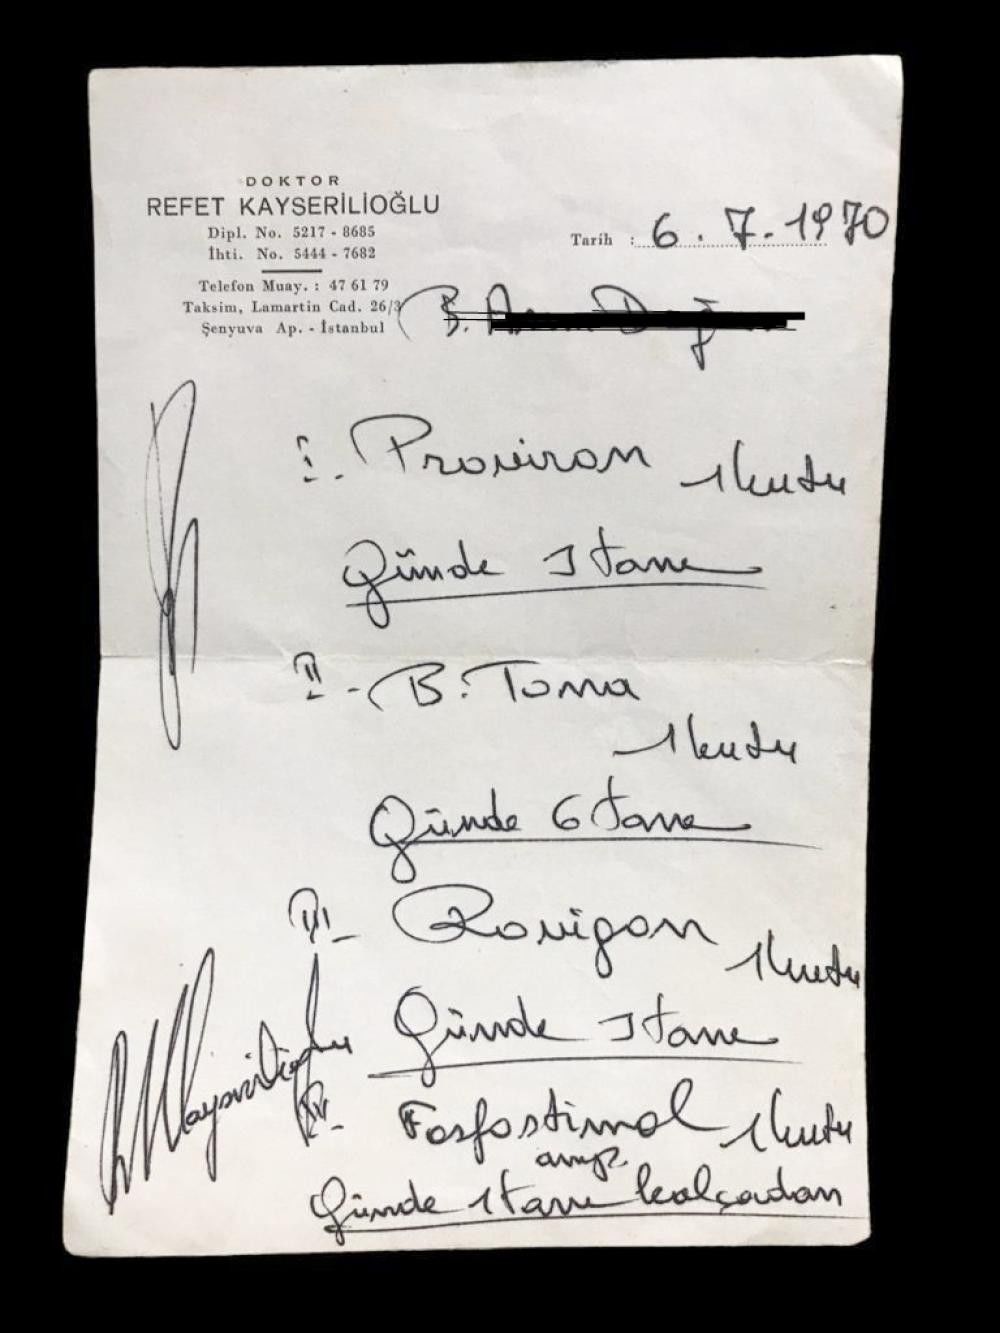 DOKTOR
REFET KAYSERİLİOĞLU
Dipl. No. 5217 - 8685
İhti. No. 5444 - 7682
Telefon Muay. : 47 61 79
Taksim, Lamartin Cad. 26/3
Şenyuva Ap. - İstanbul
Tarih : 6. 7. 1970
B.
I. Proviron 1 kutu
Günde 1 tane
II - B. Tonna
1 kutu
Günde 6 tane
III - Rovigon 1 kutu
Günde 1 tane
IV - Fosfostimol 1 kutu
amp.
Günde 1 tane kalçadan
R Kayserilioğlu